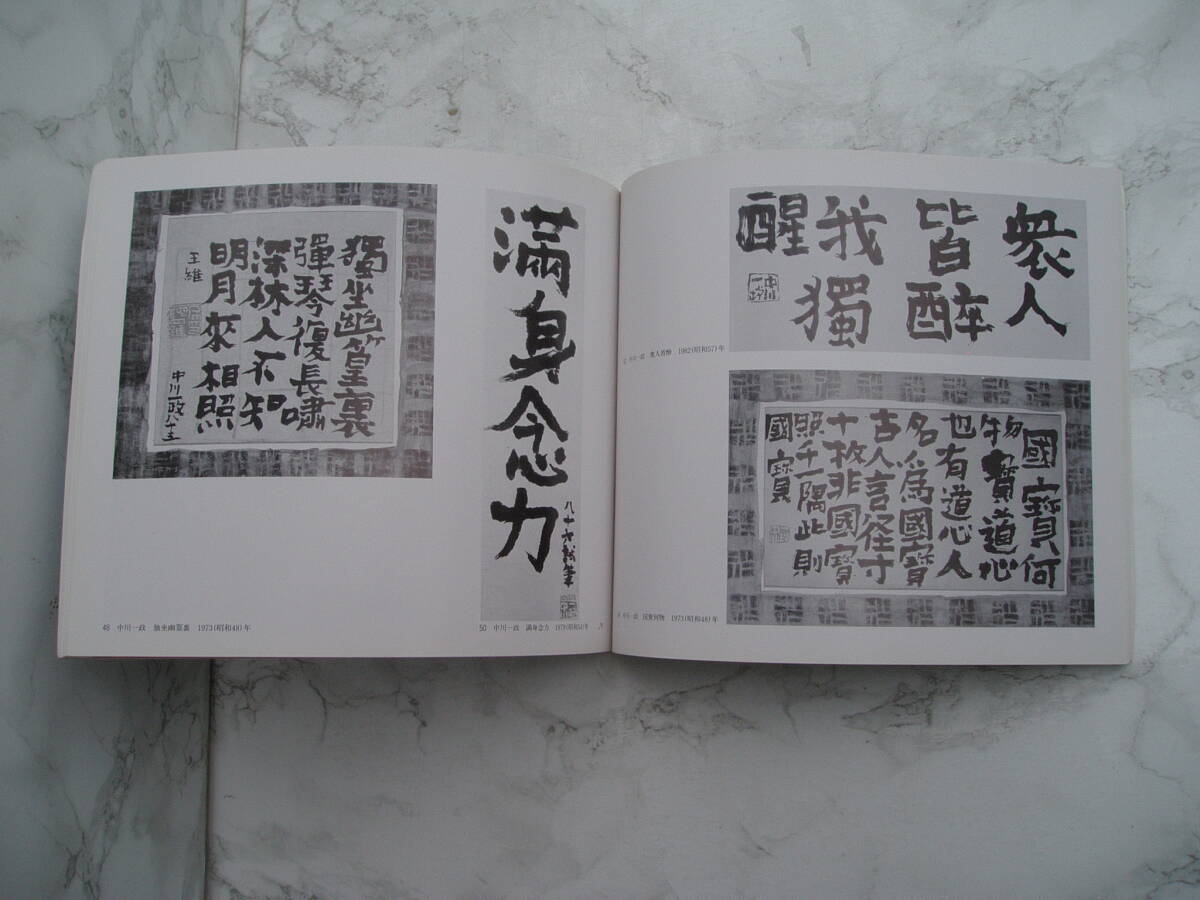 獨坐幽篁裏
彈琴復長嘯
深林人不知
明月來相照
王維
中川一政
48 中川一政 独坐幽篁裏 1973(昭和48)年
滿身念力
50 中川一政 満身念力 1979(昭和54)年
衆人
皆醉
我獨
醒
中川一政 衆人皆酔 1982(昭和57)年
國寶何
物寶道心
也有道心人
名爲國寶
古人言径寸
十枚非國寶
照千一隅此則
國寶
中川一政 国宝何物 1973(昭和48)年